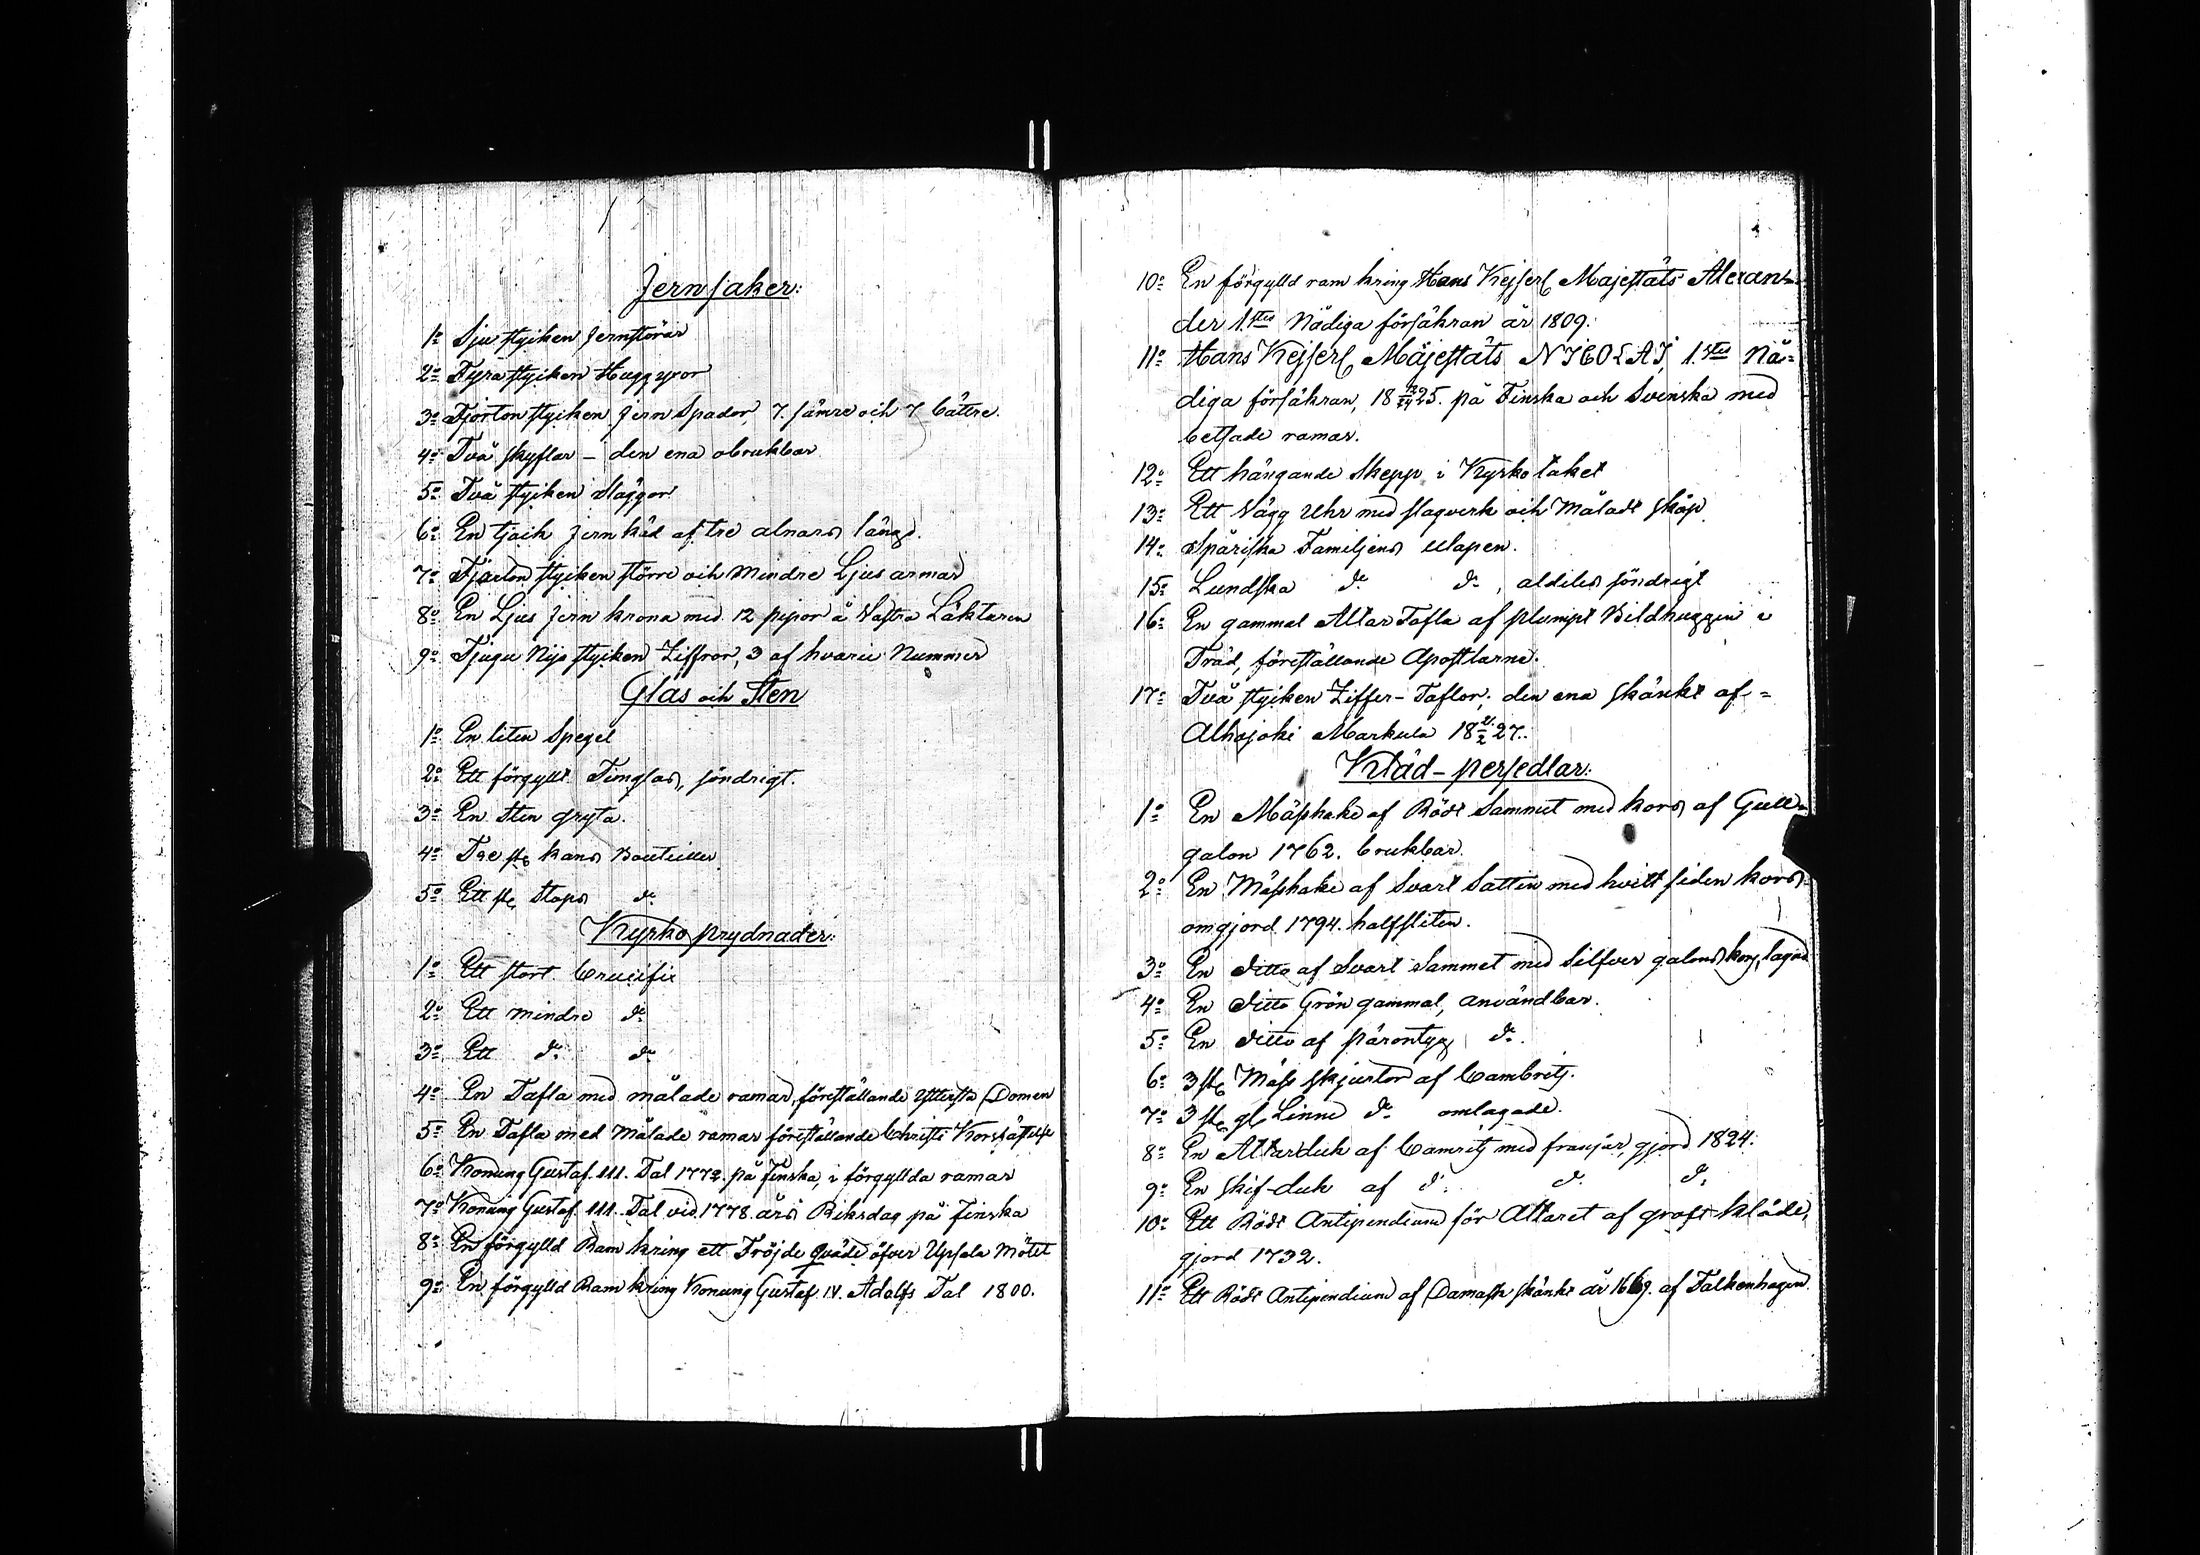 Jernsaker:
1o Sju stycken Jernstörar
2o Fyra stycken Hugg yxor
3o Fjorton stycken Jern Spador, 7. sämre och 7 bättre.
4o Två skyflar – den ena obrukbar
5o Två stycken Släggor
6o En tjock Jern käd af tre alnars längd.
7o Fjorton stycken större och Mindre Ljus armar
8o En Ljus Jern krona med 12 pipor å Västra Läktaren
9o Tjugu Nijo stycken Ziffror, 3 af hvarie Nummer
Glas och Sten
1o En liten Spegel
2o Ett förgyllt Timglas, söndrigt.
3o En Sten gryta.
4o Tre st. kans Bouteiller
5o Ett st. Stops do
Kyrko prydnader:
1o Ett stort Crucifix
2o Ett mindre do
3o Ett do do
4o En Tafla med målade ramar, föreställande Yttersta Domen
5o En Tafla med Målade ramar föreställande Christi Korsfästelse
6o Konung Gustaf III. Tal 1772. på Finska, i förgyllda ramar
7o Konung Gustaf III. Tal vid 1778 års Riksdag på Finska
8o En förgylld Ram kring ett Fröjde qväde öfver Upsala Mötet
9o En förgylld Ram kring Konung Gustaf IV. Adolfs Tal 1800.
10o En förgylld ram kring Hans Kejserl Majestäts Alexan=
der 1.stes Nådiga försäkran år 1809.
11o Hans Kejserl Majestäts NICOLAI, 1.stes Nå=
diga försäkran, 18 12/24 25. på Finska och Svenska med
betsade ramar.
12o Ett hängande Skepp i Kyrko taket
13o Ett Vägg Uhr med slagverk och Måladt skåp
14o Spåriska Familjens Wapen.
15o Lundska do do, aldeles söndrigt
16o En gammal Altar Tafla af plumpt Bildhuggeri i
Träd, föreställande Apostlarne.
17o Två stycken Ziffer-Taflor; den ena skänkt af =
Alhojoki Markula 18 21/2 27.
Kläd-persedlar:
1o En Mässhake af Rödt Sammet med kors af Gull=
galon 1762. brukbar.
2o En Mässhake af Svart Satten med hvitt siden kors
omgjord 1794. halfsliten.
3o En ditto af Svart Sammet med Silfver galons kors, lagad
4o En ditto Grön gammal, användbar.
5o En ditto af do.
6o 3 st. Mäss skjortor af Cambritz.
7o 3 st. gl. Linne do omlagade.
8o En Altarduk af Camritz med fransar, gjord 1824.
9o En skif-duk af do do do
10o Ett Rödt Antipendium för Altaret af groft kläde,
gjord 1732.
11o Ett Rödt Antipendium af Damask skänkt år 1669. af Falkenhagen.